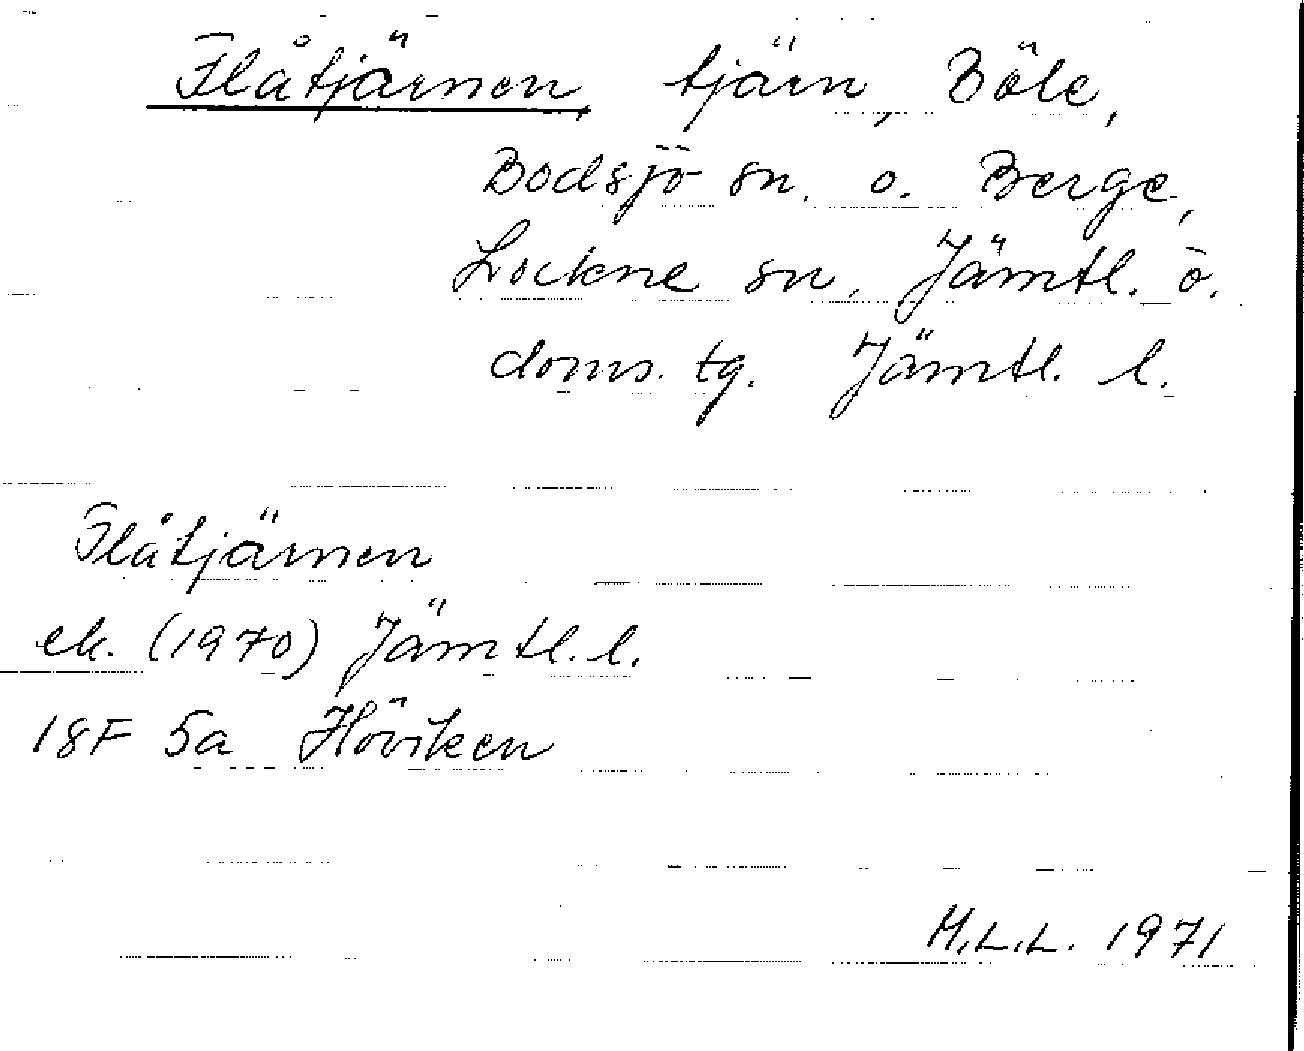 Flåtjärnen, tjärn, Böle,
Bodsjö sn. o. Berge,
Lockne sn, Jämtl. ö.
doms. tg. Jämtl. l.
Flåtjärnen
ek. (1970) Jämtl. l.
18F 5a Höviken
M.L.L. 1971